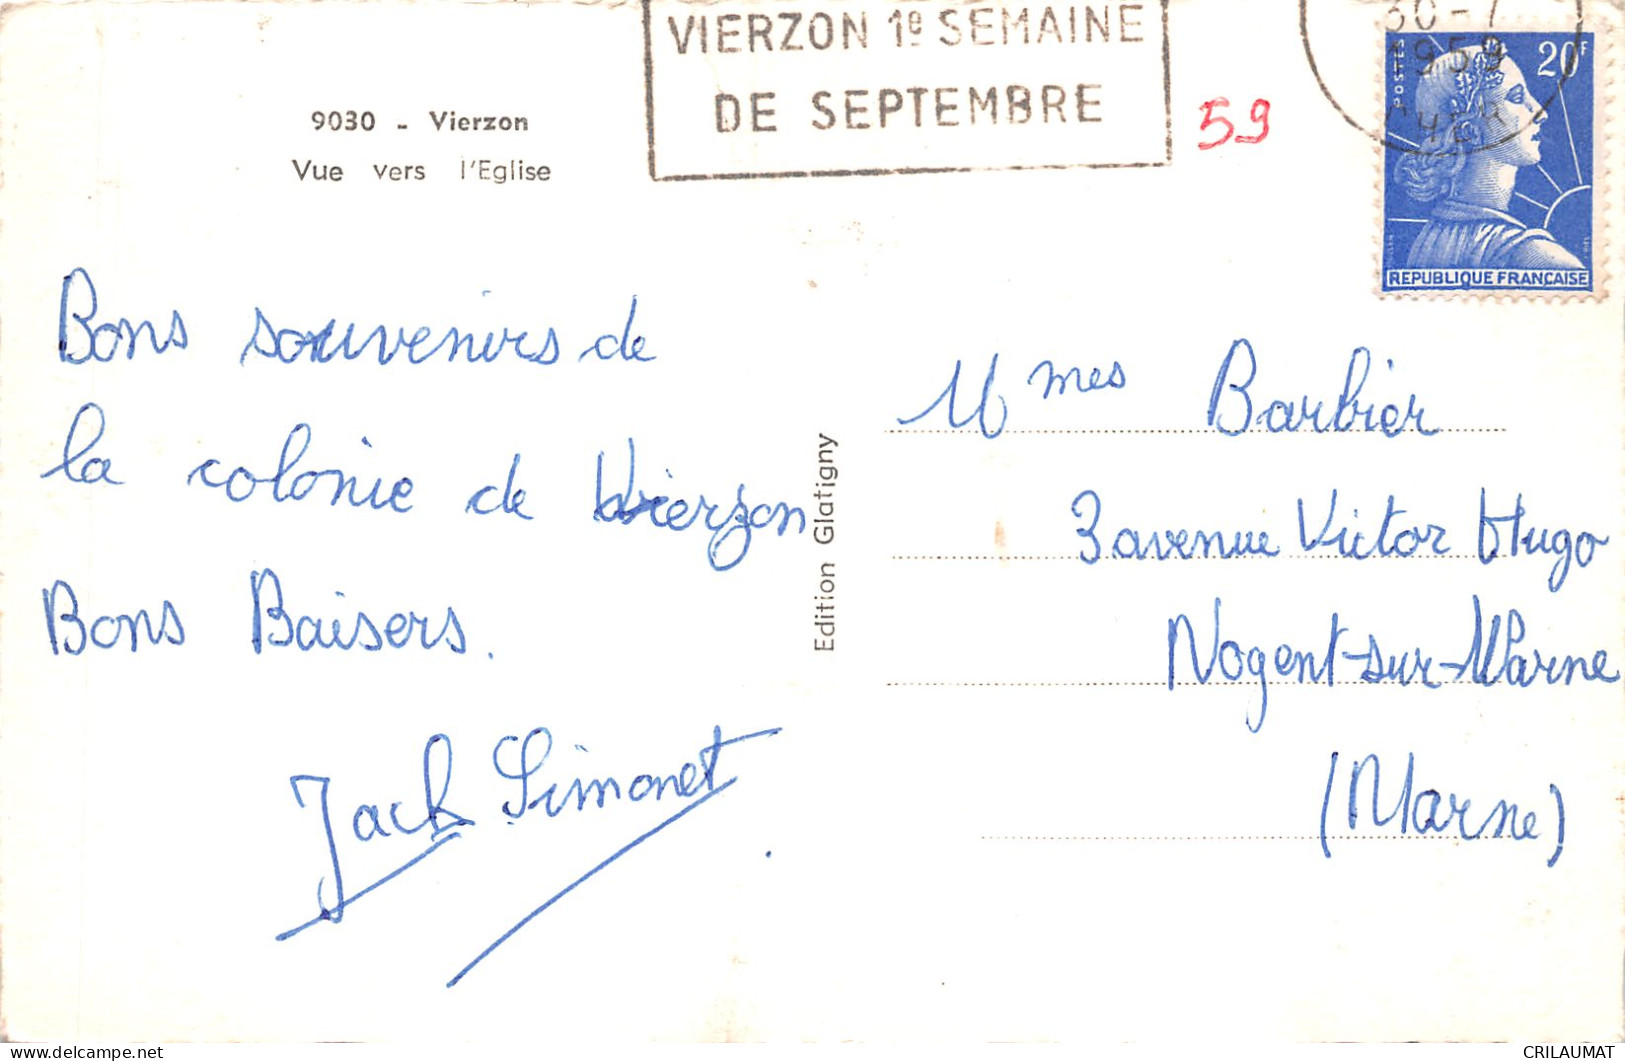 VIERZON 1e SEMAINE
DE SEPTEMBRE
30-7
1959
CHER
POSTES
20F
REPUBLIQUE FRANÇAISE
59
9030 - Vierzon
Vue vers l'Eglise
Bons souvenirs de
la colonie de Vierzon
Bons Baisers.
Jack Simonet
Edition Glatigny
Mmes Barbier
3 avenue Victor Hugo
Nogent-sur-Marne
(Marne)
CRILAUMAT